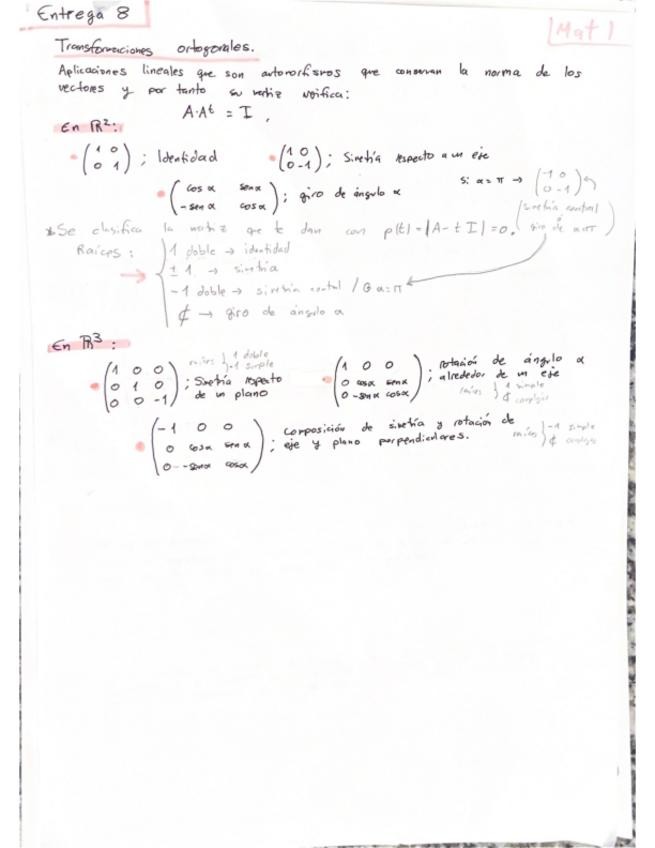 Entrega 8
Mat 1
Transformaciones ortogonales.
Aplicaciones lineales que son automorfismos que conservan la norma de los
vectores y por tanto su matriz verifica:
A·Aᵗ = I,
En ℝ²:
(1 0 / 0 1); Identidad (1 0 / 0 -1); Simetría respecto a un eje
(cos α sen α / -sen α cos α); giro de ángulo α si α = π → (-1 0 / 0 -1)
(simetría central / giro de α=π)
*Se clasifica la matriz que te dan con p(t) = |A - t I| = 0.
Raíces: 1 doble → identidad
± 1 → simetría
-1 doble → simetría central / G α=π
₵ → giro de ángulo α
En ℝ³:
(1 0 0 / 0 1 0 / 0 0 -1); Simetría respecto de un plano raíces } 1 doble -1 simple
(1 0 0 / 0 cos α sen α / 0 -sen α cos α); rotación de ángulo α alrededor de un eje raíces } 1 simple ₵ complejas
(-1 0 0 / 0 cos α sen α / 0 -sen α cos α); Composición de simetría y rotación de eje y plano perpendiculares. raíces } -1 simple ₵ complejas